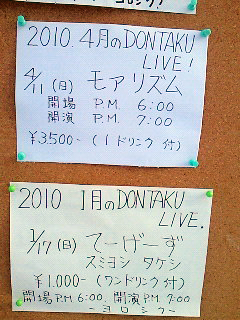 ヨロシク!
2010.4月のDONTAKU
LIVE!
4/11(日) モアリズム
開場 P.M. 6:00
開演 P.M. 7:00
¥3.500-(1ドリンク付)
2010 1月のDONTAKU
LIVE.
1/17(日) てーげーず
スミヨシ タケシ
¥1.000-(ワンドリンク付)
開場P.M 6:00、開演P.M. 7:00
-ヨロシク-